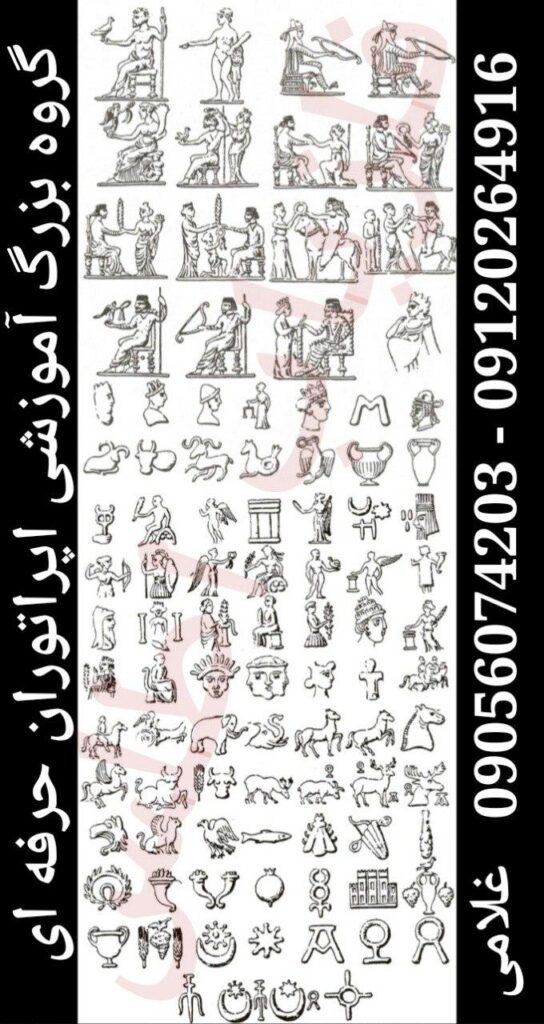 گروه بزرگ آموزشی اپراتوران حرفه ای
غلامی 09056074203 - 09120264916